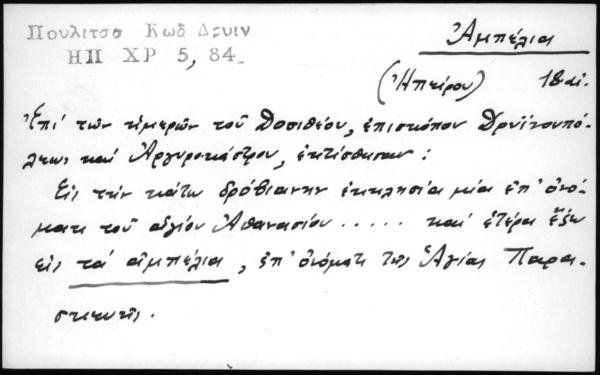 Πουλιτσα Κωδ Δρυιν
ΗΠ ΧΡ 5, 84.
Ἀμπέλια
(Ἠπείρου) 18 αἰ.
Ἐπί τῶν ἡμερῶν τοῦ Δοσιθέου, ἐπισκόπου Δρυϊνουπό-
λεως καί Ἀργυροκάστρου, ἐκτίσθησαν:
Εἰς τήν κάτω δρόβιανην ἐκκλησία μία ἐπ' ὀνό-
ματι τοῦ ἁγίου Ἀθανασίου ..... καί ἑτέρα ἔξω
εἰς τά ἀμπέλια, ἐπ' ὀνόματι τῆς Ἁγίας Παρα-
σκευῆς.